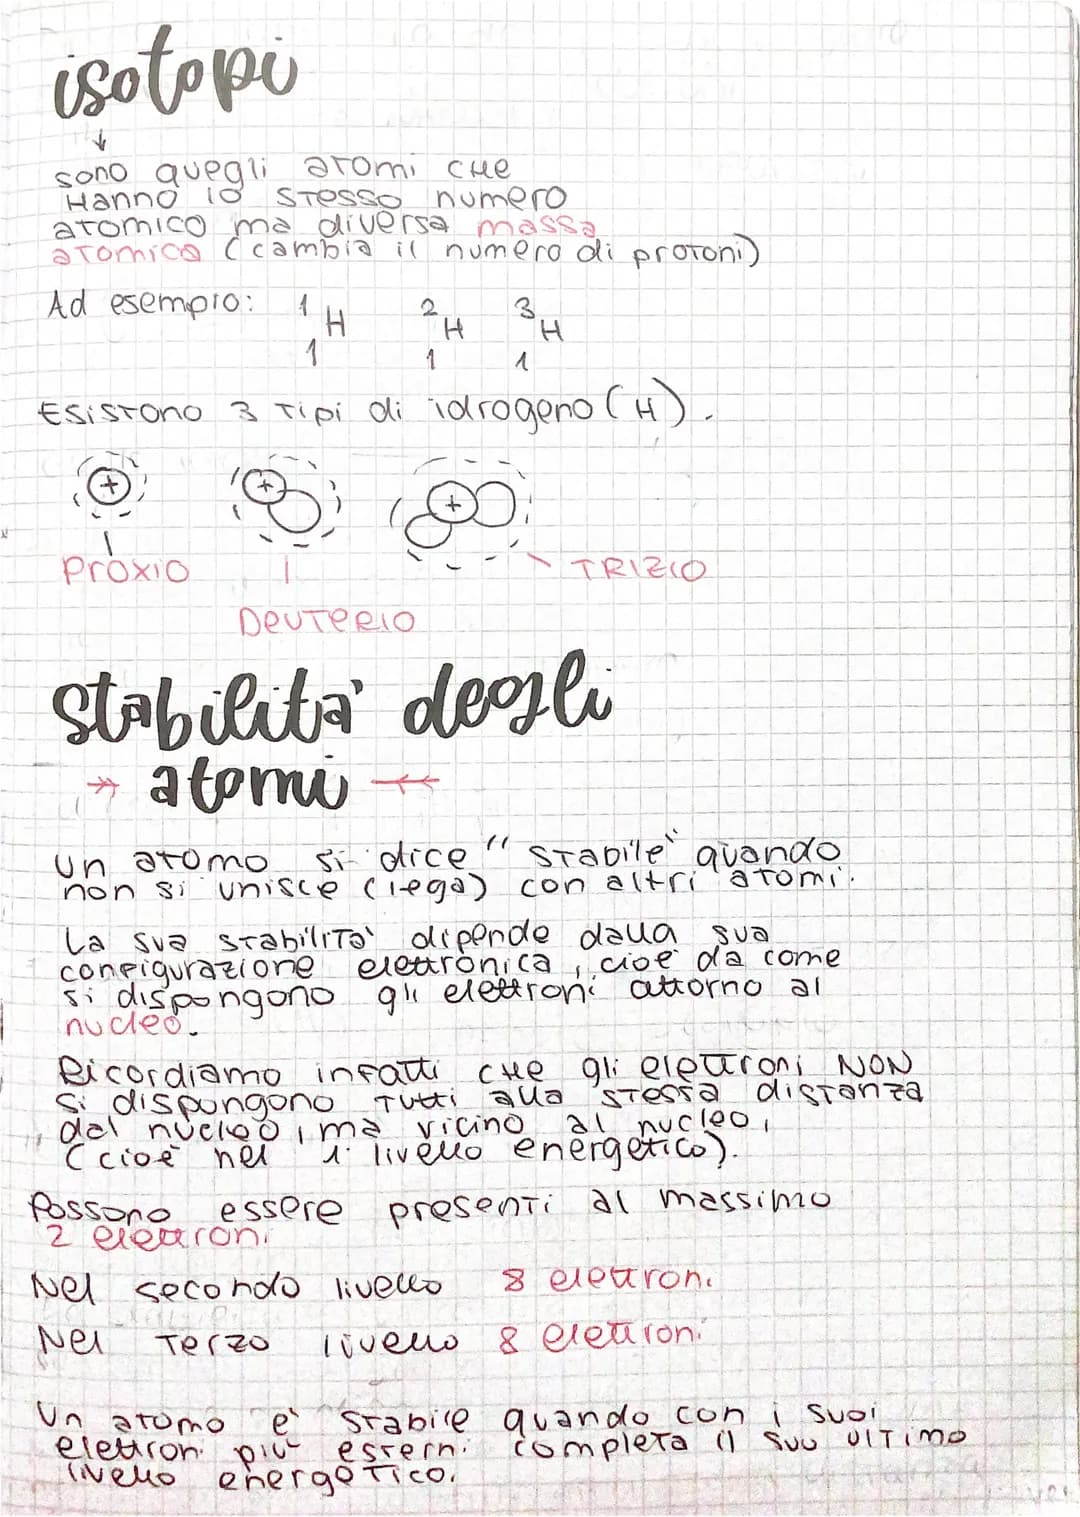 isotopi
↓
sono quegli atomi che
Hanno lo stesso numero
atomico ma diversa massa
atomica (cambia il numero di protoni)
Ad esempio: ¹₁H ²₁H ³₁H
Esistono 3 tipi di idrogeno (H).
+ + +
Proxio
TRIZIO
DEUTERIO
stabilita' degli
atomi
un atomo si dice "stabile" quando
non si unisce (lega) con altri atomi.
La sua stabilità dipende dalla sua
configurazione elettronica, cioè da come
si dispongono gli elettroni attorno al
nucleo.
Ricordiamo infatti che gli elettroni NON
si dispongono tutti alla stessa distanza
dal nucleo, ma vicino al nucleo,
(cioè nel 1° livello energetico).
Possono essere presenti al massimo
2 elettroni
Nel secondo livello 8 elettroni
Nel Terzo livello 8 elettroni
Un atomo e' stabile quando con i suoi
elettroni più esterni completa il suo ultimo
livello energetico.